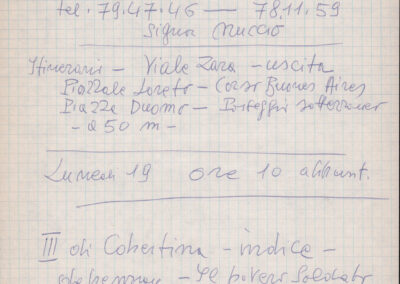 tel. 79.47.46 — 78.11.59
Signor Muccio
Itinerario — Viale Zara - uscita
Piazzale Loreto - Corso Buenos Aires
Piazza Duomo - Posteggio sotterraneo
- a 50 m -
Lunedì 19 ore 10 appunt.
III di Copertina - indice -
- Il povero Soldato